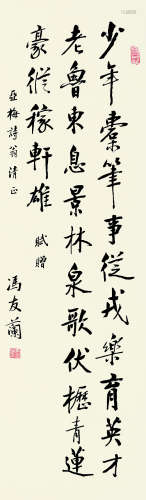 少年橐筆事從戎樂育英才
老魯東息景林泉歌伏櫪青蓮
豪縱稼軒雄 賦贈
亞梅詩翁清正
馮友蘭